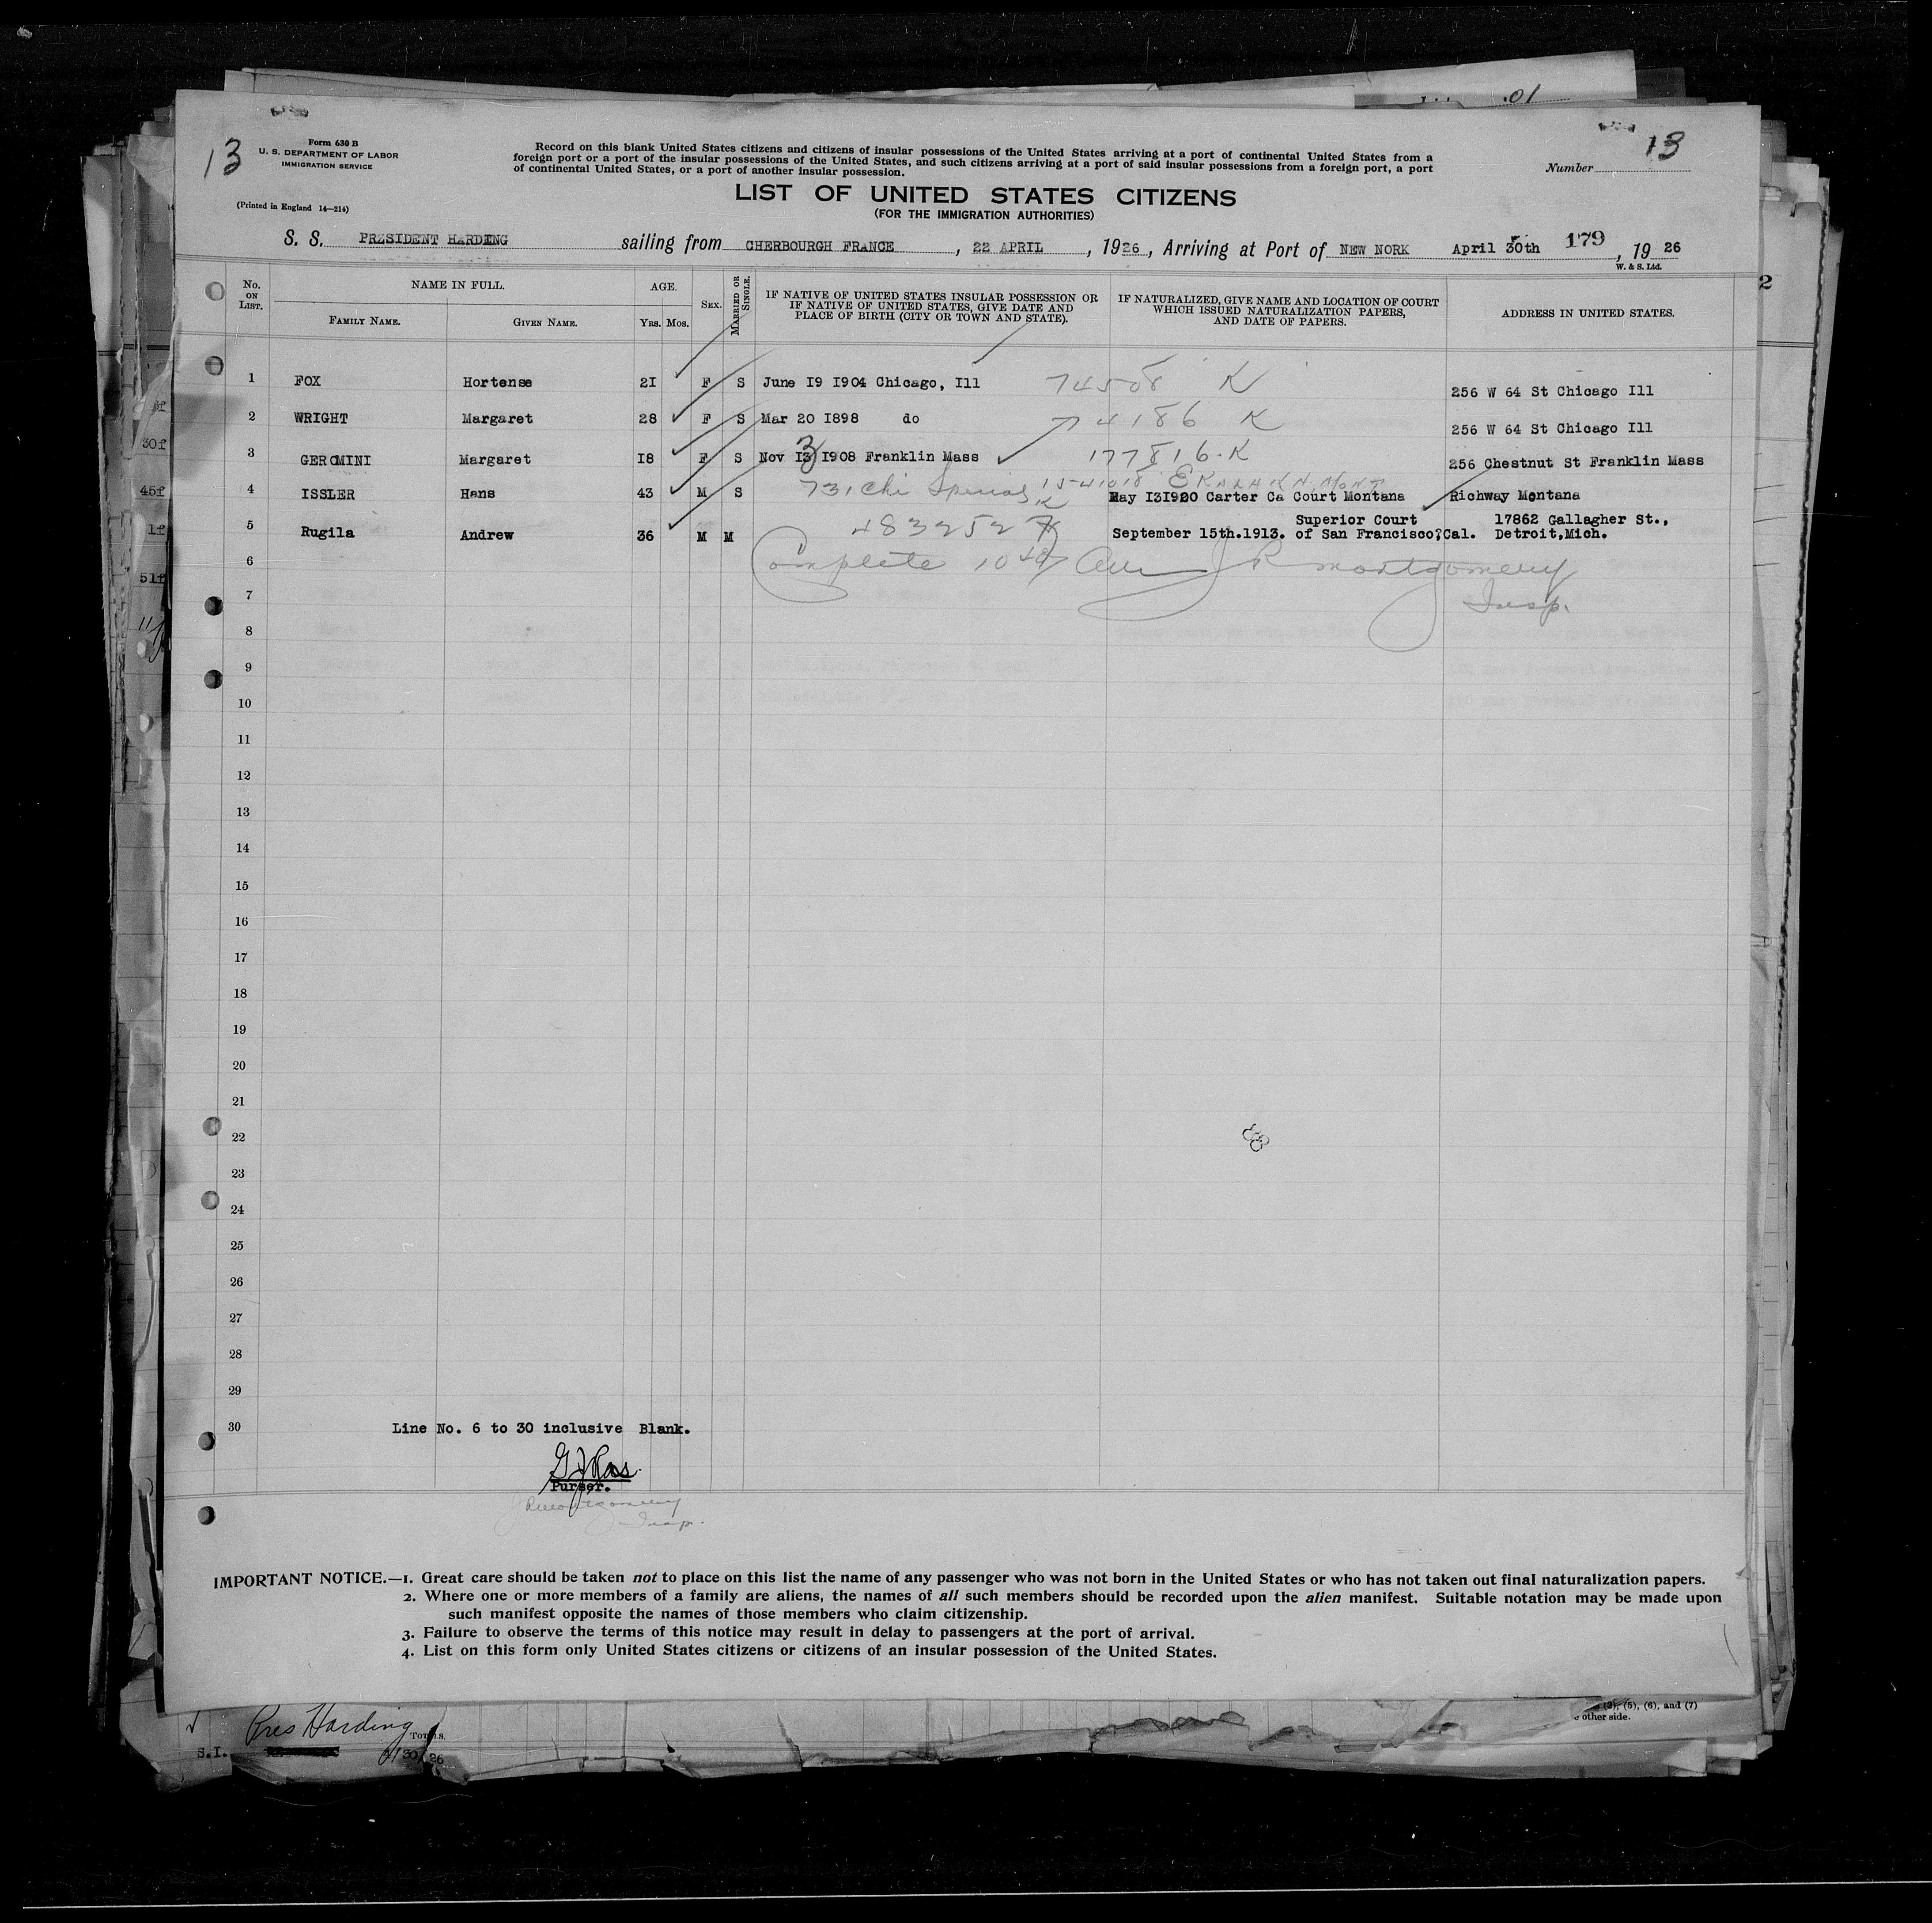 01
13
Form 630 B
U. S. DEPARTMENT OF LABOR
IMMIGRATION SERVICE
(Printed in England 14—214)
Record on this blank United States citizens and citizens of insular possessions of the United States arriving at a port of continental United States from a
foreign port or a port of the insular possessions of the United States, and such citizens arriving at a port of said insular possessions from a foreign port, a port
of continental United States, or a port of another insular possession.
Number 13
LIST OF UNITED STATES CITIZENS
(FOR THE IMMIGRATION AUTHORITIES)
S. S. PRESIDENT HARDING sailing from CHERBOURGH FRANCE, 22 APRIL, 1926, Arriving at Port of NEW NORK April 30th 179, 19 26
W. & S. Ltd.
2
No. ON LIST.
NAME IN FULL.
FAMILY NAME. GIVEN NAME.
AGE.
YRS. MOS.
SEX.
MARRIED OR SINGLE.
IF NATIVE OF UNITED STATES INSULAR POSSESSION OR
IF NATIVE OF UNITED STATES, GIVE DATE AND
PLACE OF BIRTH (CITY OR TOWN AND STATE).
IF NATURALIZED, GIVE NAME AND LOCATION OF COURT
WHICH ISSUED NATURALIZATION PAPERS,
AND DATE OF PAPERS.
ADDRESS IN UNITED STATES.
1 FOX Hortense 2I F S June I9 I904 Chicago, Ill 74508 K 256 W 64 St Chicago Ill
2 WRIGHT Margaret 28 F S Mar 20 I898 do 74186 K 256 W 64 St Chicago Ill
3 GEROMINI Margaret I8 F S Nov I3 I908 Franklin Mass 177816-K 256 Chestnut St Franklin Mass
4 ISSLER Hans 43 M S 731 Chi Special 1541018 K EKALAKA MONT
May I3I920 Carter Ca Court Montana Richway Montana
5 Rugila Andrew 36 M M 4832527 September 15th.1913. Superior Court
of San Francisco,Cal. 17862 Gallagher St.,
Detroit,Mich.
6 Complete 10 40 AM J R Montgomery
Insp.
7
8
9
10
11
12
13
14
15
16
17
18
19
20
21
22
23
24
25
26
27
28
29
30 Line No. 6 to 30 inclusive Blank.
G J Ross
Purser.
J R Montgomery
Insp.
30f
45f
1f
51f
IMPORTANT NOTICE.—1. Great care should be taken not to place on this list the name of any passenger who was not born in the United States or who has not taken out final naturalization papers.
2. Where one or more members of a family are aliens, the names of all such members should be recorded upon the alien manifest. Suitable notation may be made upon
such manifest opposite the names of those members who claim citizenship.
3. Failure to observe the terms of this notice may result in delay to passengers at the port of arrival.
4. List on this form only United States citizens or citizens of an insular possession of the United States.
(5), (6), and (7)
other side.
Pres Harding
S.I.
4/30/26